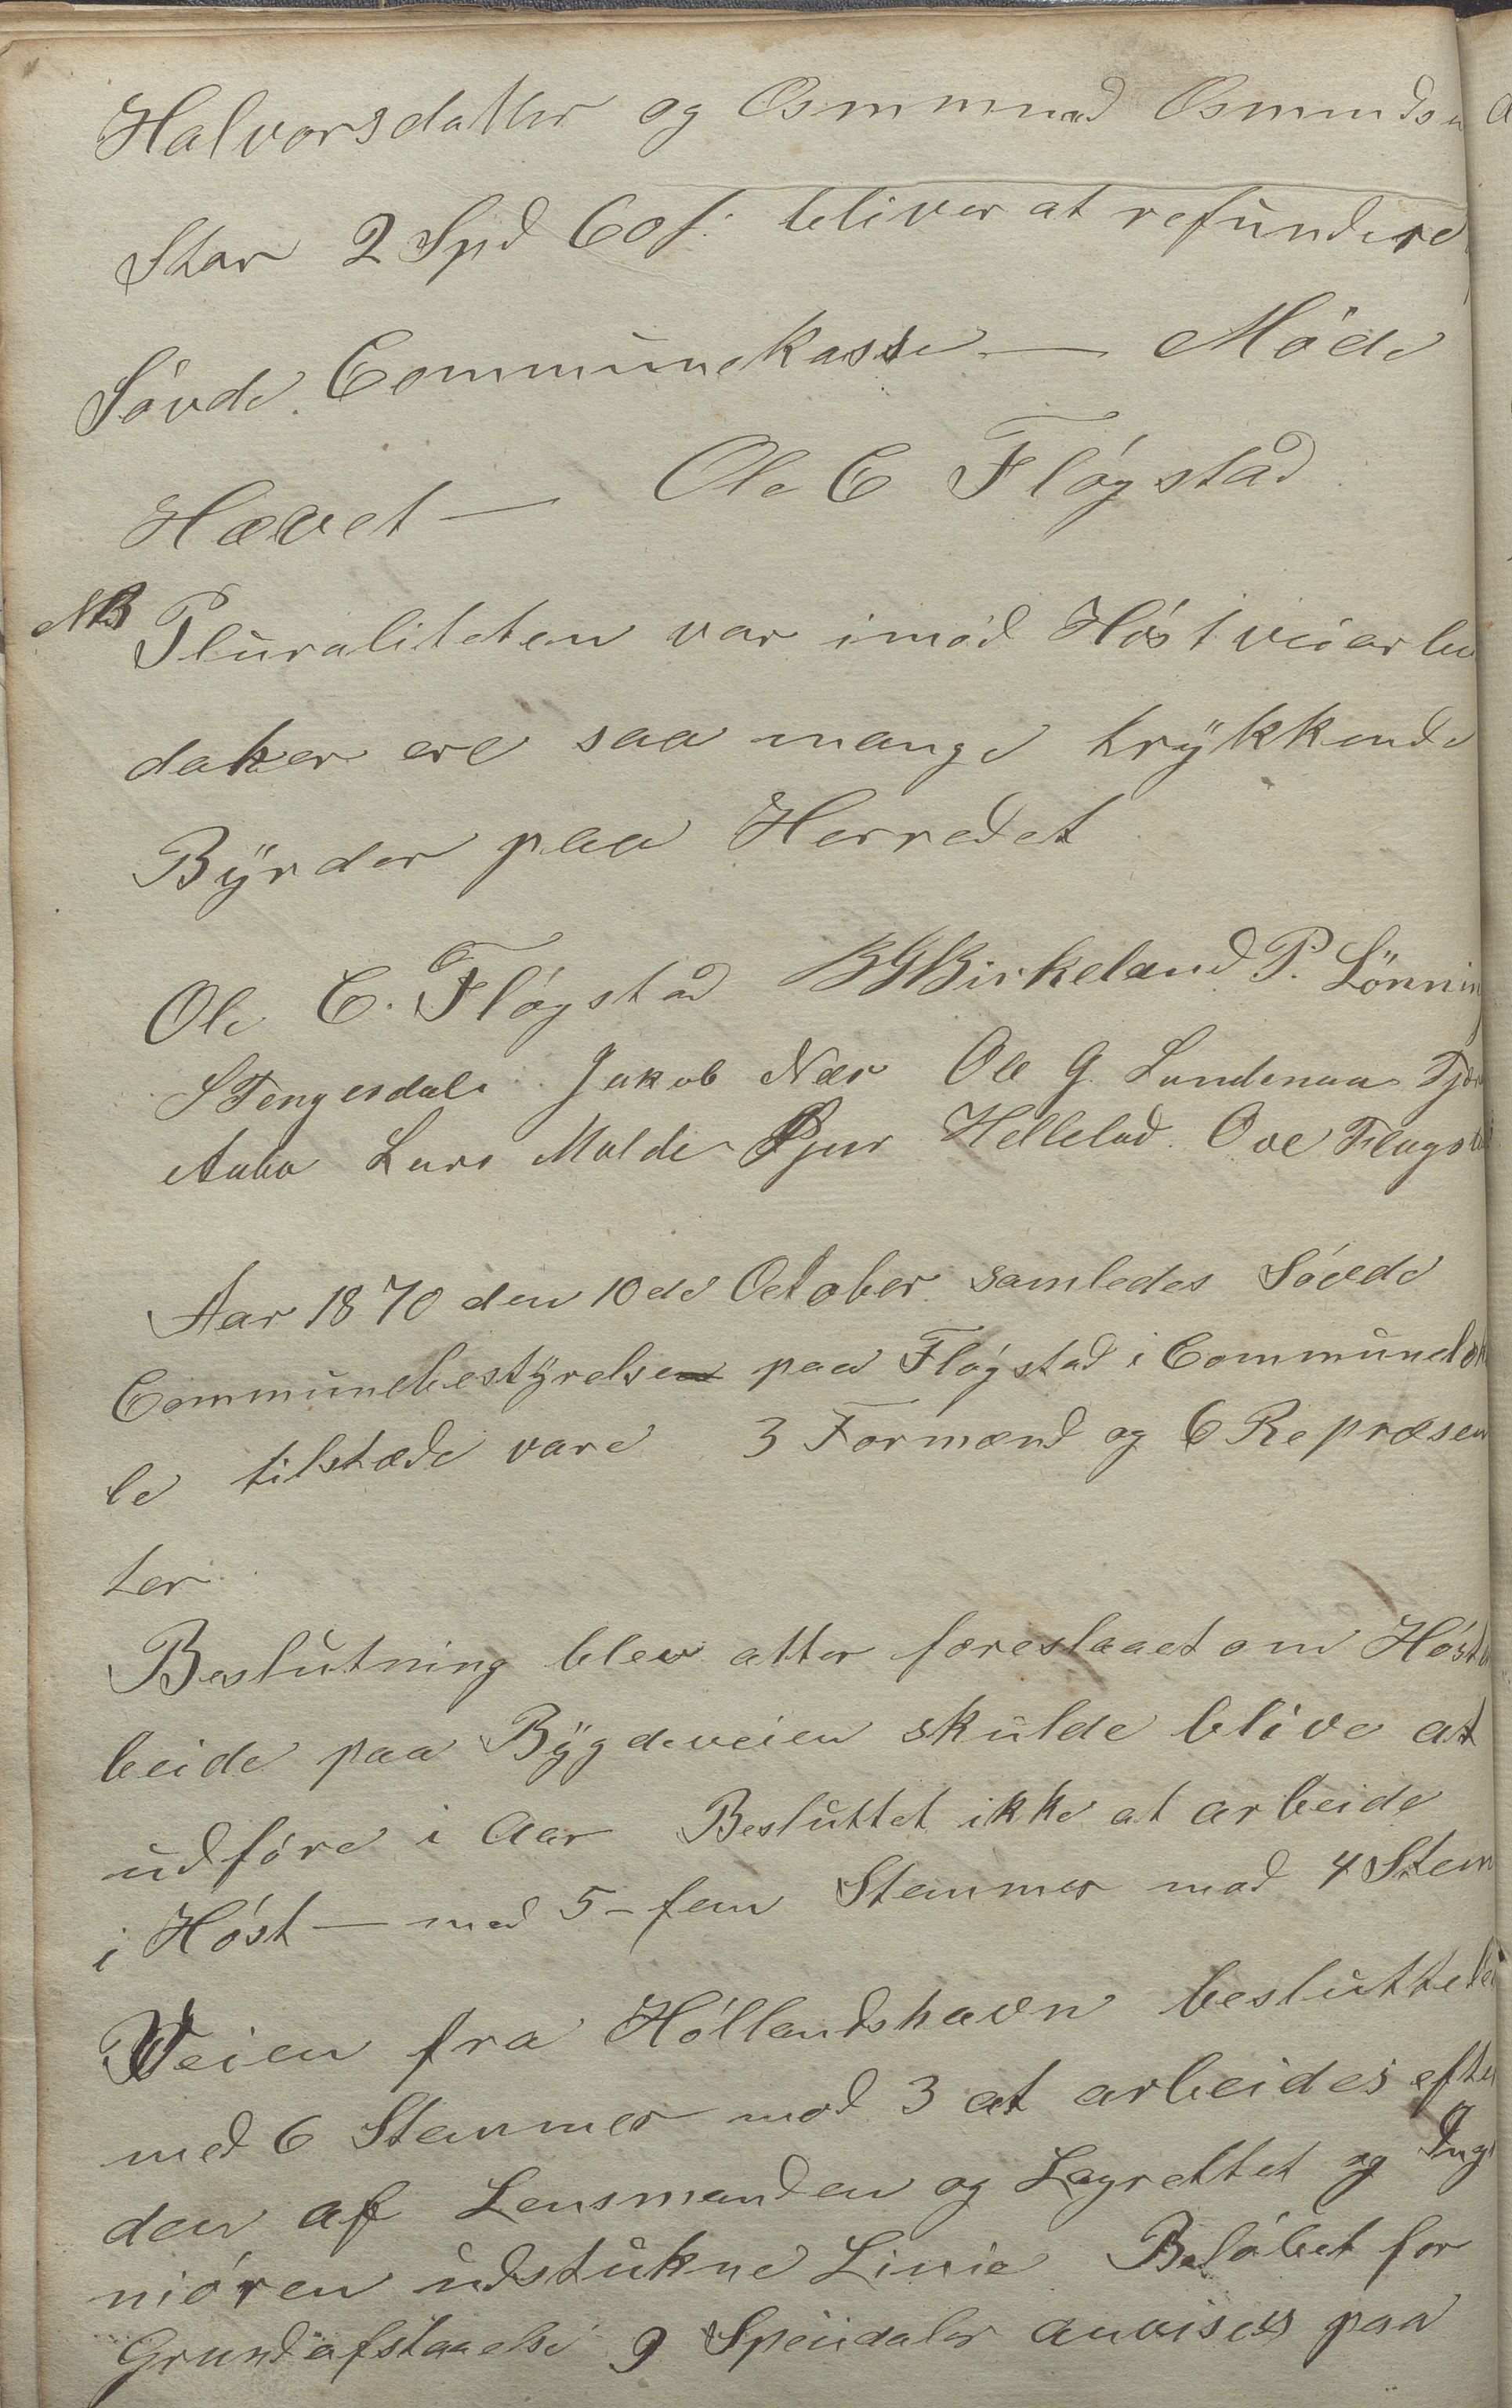 Halvorsdatter og Osmund Osmunds
Star 2 Spd 60 f: bliver at refundere
Søvde Communekasse — Møde
Hævet — Ole C Fløgstad
NB Pluraliteten var imod Høstveiarbei
da her ere saa mange trykkende
Byrder paa Herredet
Ole C. Fløgstad BGBirkeland P. Lönning
S Tengesdal Jakob Nær Ole G. Lundenaa
Aabø Lars Molde Sjur Helleland Ove Fløgsta
Aar 1870 den 10de October samledes Søvde
Communebestyrelse paa Fløgstad i Communelok
le tilstæde vare 3 Formænd og 6 Repræsen
ter
Beslutning blev atter foreslaaet om Høst
beide paa Bygdeveien skulde blive at
udføre i Aar Besluttet ikke at arbeide
i Høst — med 5 – fem Stemmer mod 4 Stem
Veien fra Høllandshavn beslutted
med 6 Stemmer mod 3 at arbeides efter
den af Lensmanden og Lagrettet og Inge
niøren udstukne Linie Beløbet for
Grundafstaaelse 9 Speiidaler anvises paa